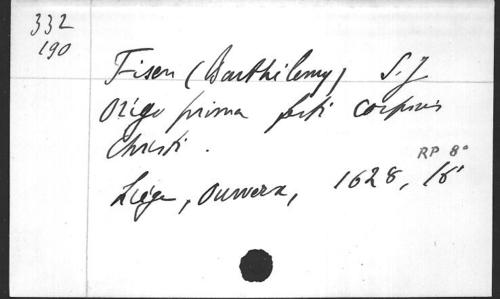 332
190
Fisen (Barthélemy) S.J
Origo prima festi corporis
Christi.
RP 8°
Liége, Ouwerx, 1628, 16°